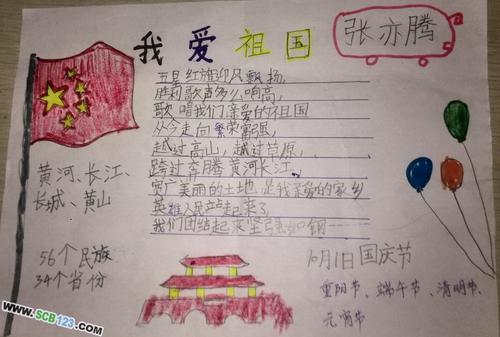 我爱祖国
五
张亦腾
五星红旗迎风飘扬,
胜利歌声多么响高,
歌唱我们亲爱的祖国
从今走向繁荣富强,
越过高山,越过草原,
跨过奔腾黄河长江
宽广美丽的土地是我亲爱的家乡
英雄人民站起来了
我们团结起来坚强如钢
黄河、长江、
长城、黄山
56个民族
34个省份
10月1日国庆节
重阳节、端午节、清明节、
元宵节
www.SCB123.com